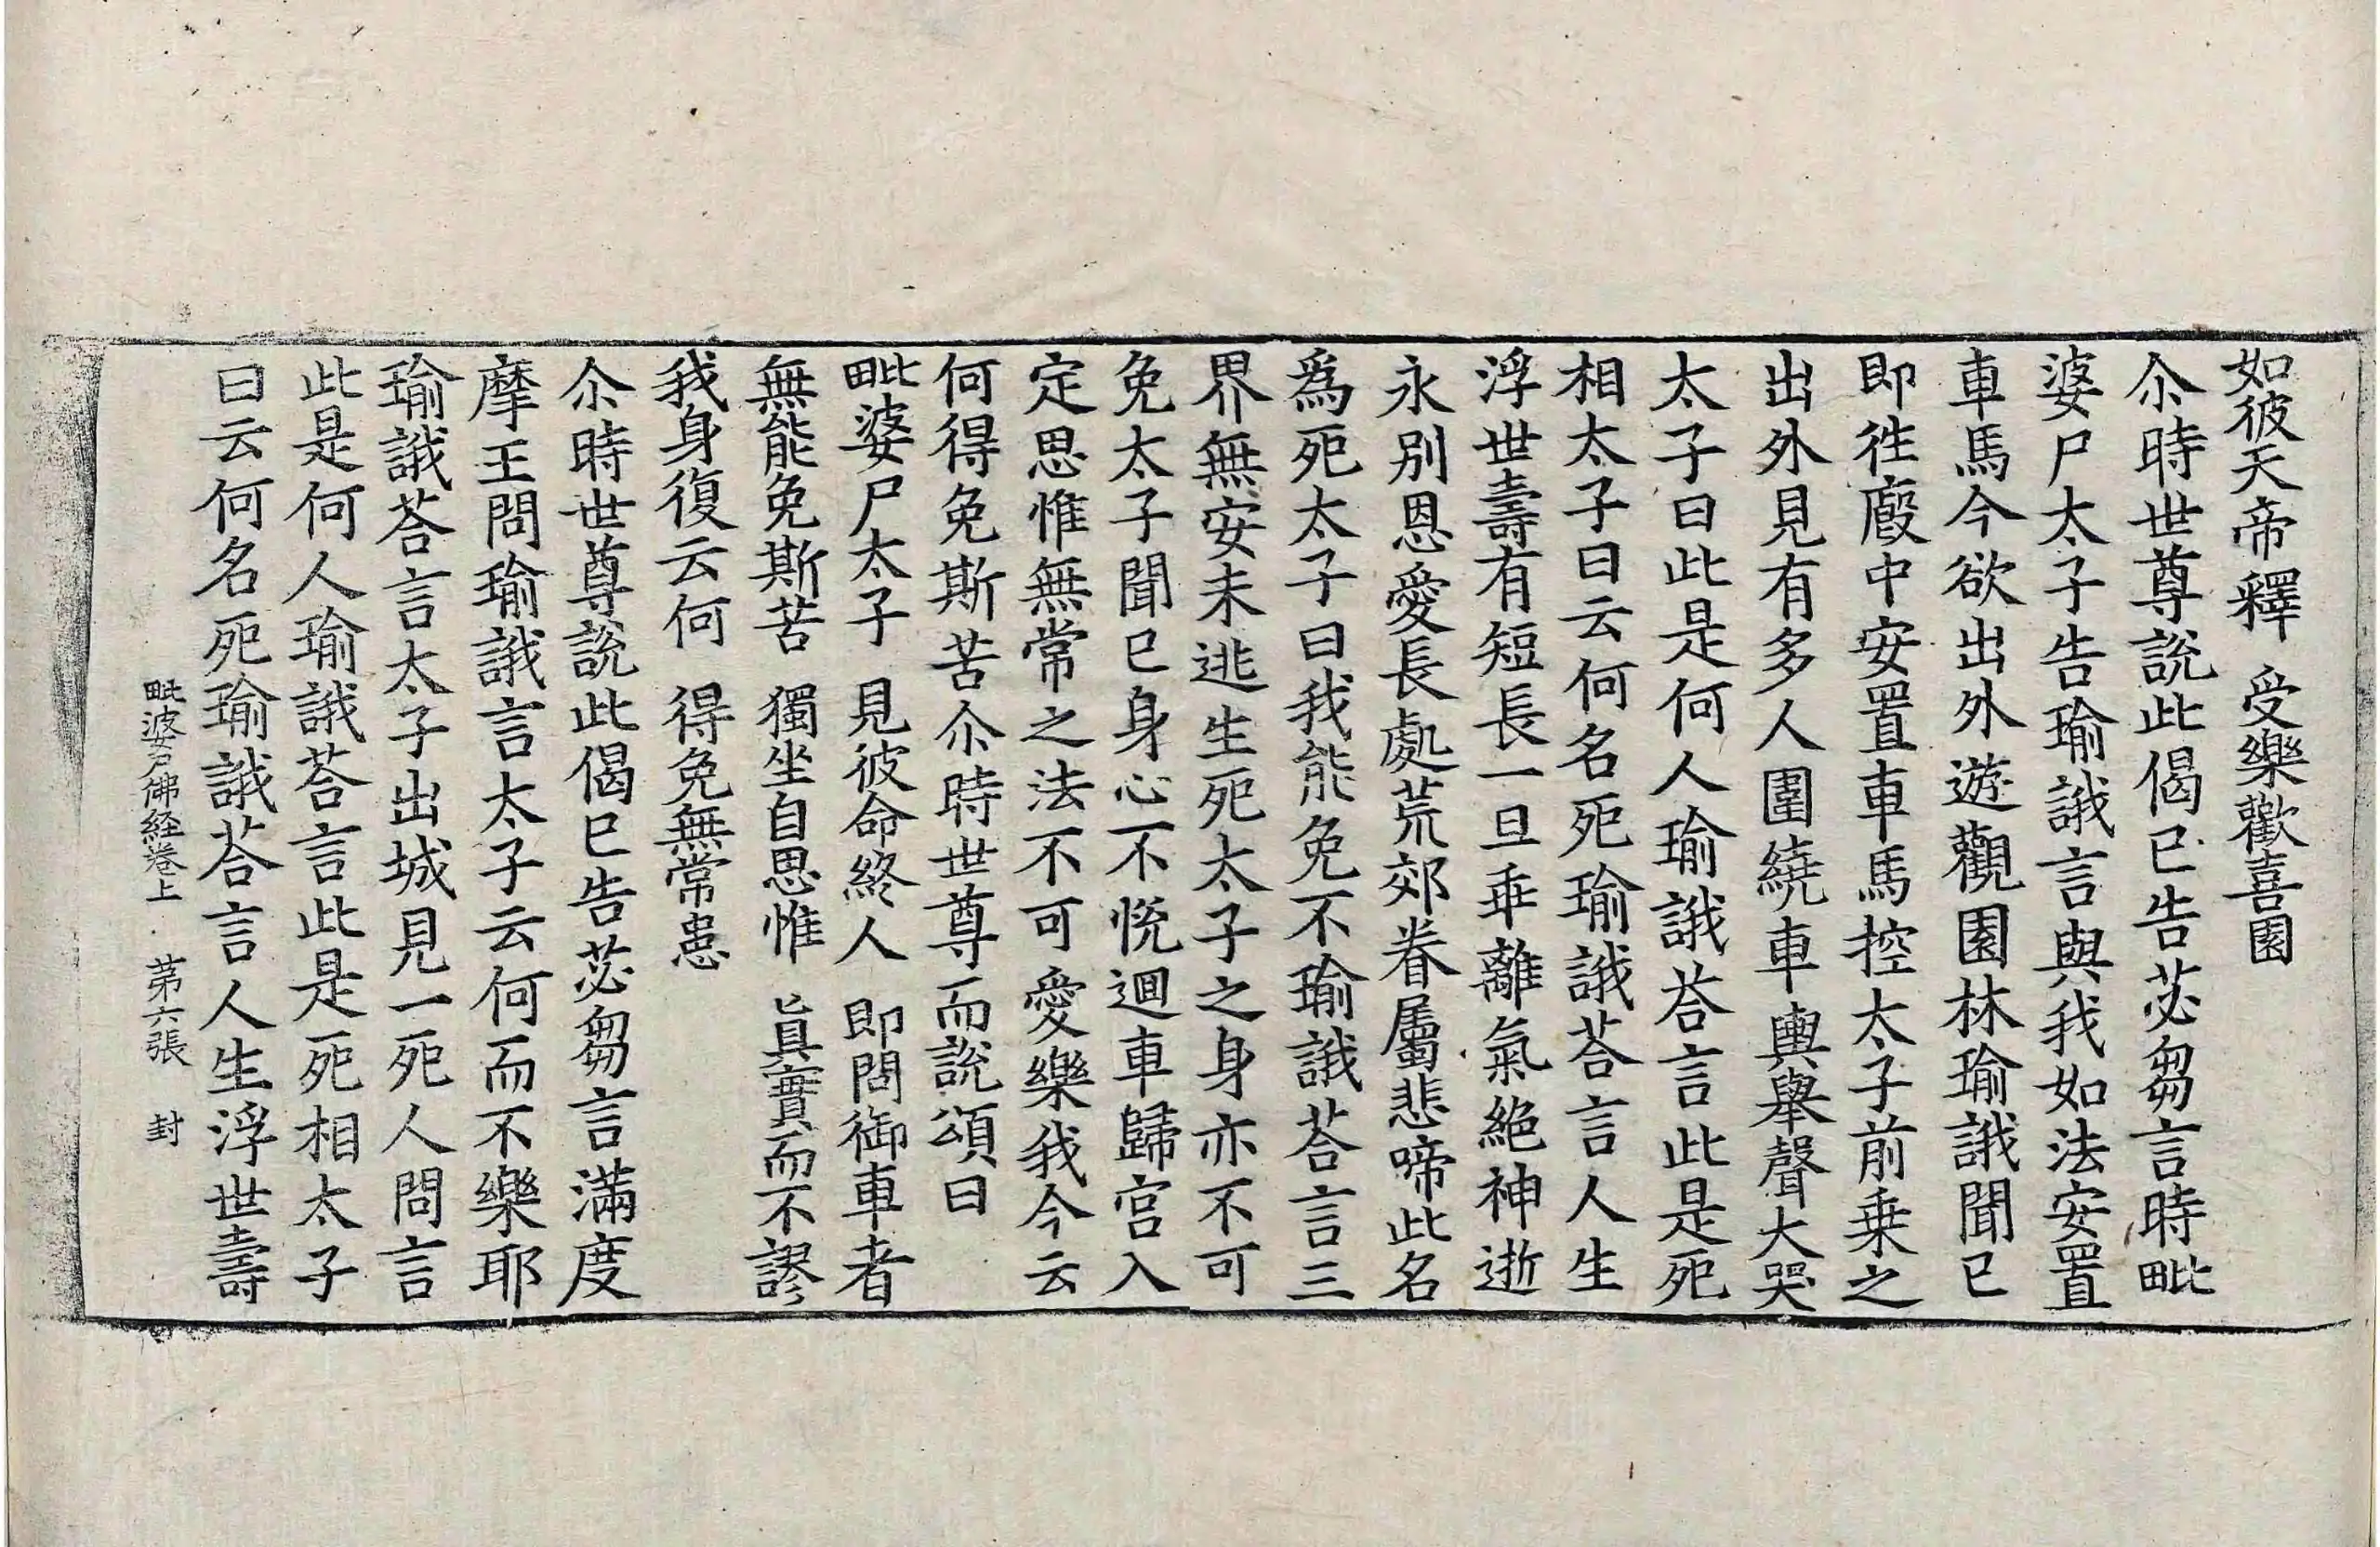 如彼天帝釋　受樂歡喜園
尒時世尊說此偈已告苾芻言時毗
婆尸太子告瑜誐言與我如法安置
車馬今欲出外遊觀園林瑜誐聞已
即徃廄中安置車馬控太子前乗之
出外見有多人圍繞車輿舉聲大哭
太子曰此是何人瑜誐荅言此是死
相太子曰云何名死瑜誐荅言人生
浮世壽有短長一旦乖離氣絶神逝
永別恩愛長處荒郊眷屬悲啼此名
爲死太子曰我能免不瑜誐荅言三
界無安未逃生死太子之身亦不可
免太子聞已身心不悅迴車歸宮入
定思惟無常之法不可愛樂我今云
何得免斯苦尒時世尊而說頌曰
毗婆尸太子　見彼命終人　即問御車者
無能免斯苦　獨坐自思惟　眞實而不謬
我身復云何　得免無常患
尒時世尊說此偈已告苾芻言滿度
摩王問瑜誐言太子云何而不樂耶
瑜誐荅言太子出城見一死人問言
此是何人瑜誐荅言此是死相太子
曰云何名死瑜誐荅言人生浮世壽
毗婆尸佛経卷上　第六張　封